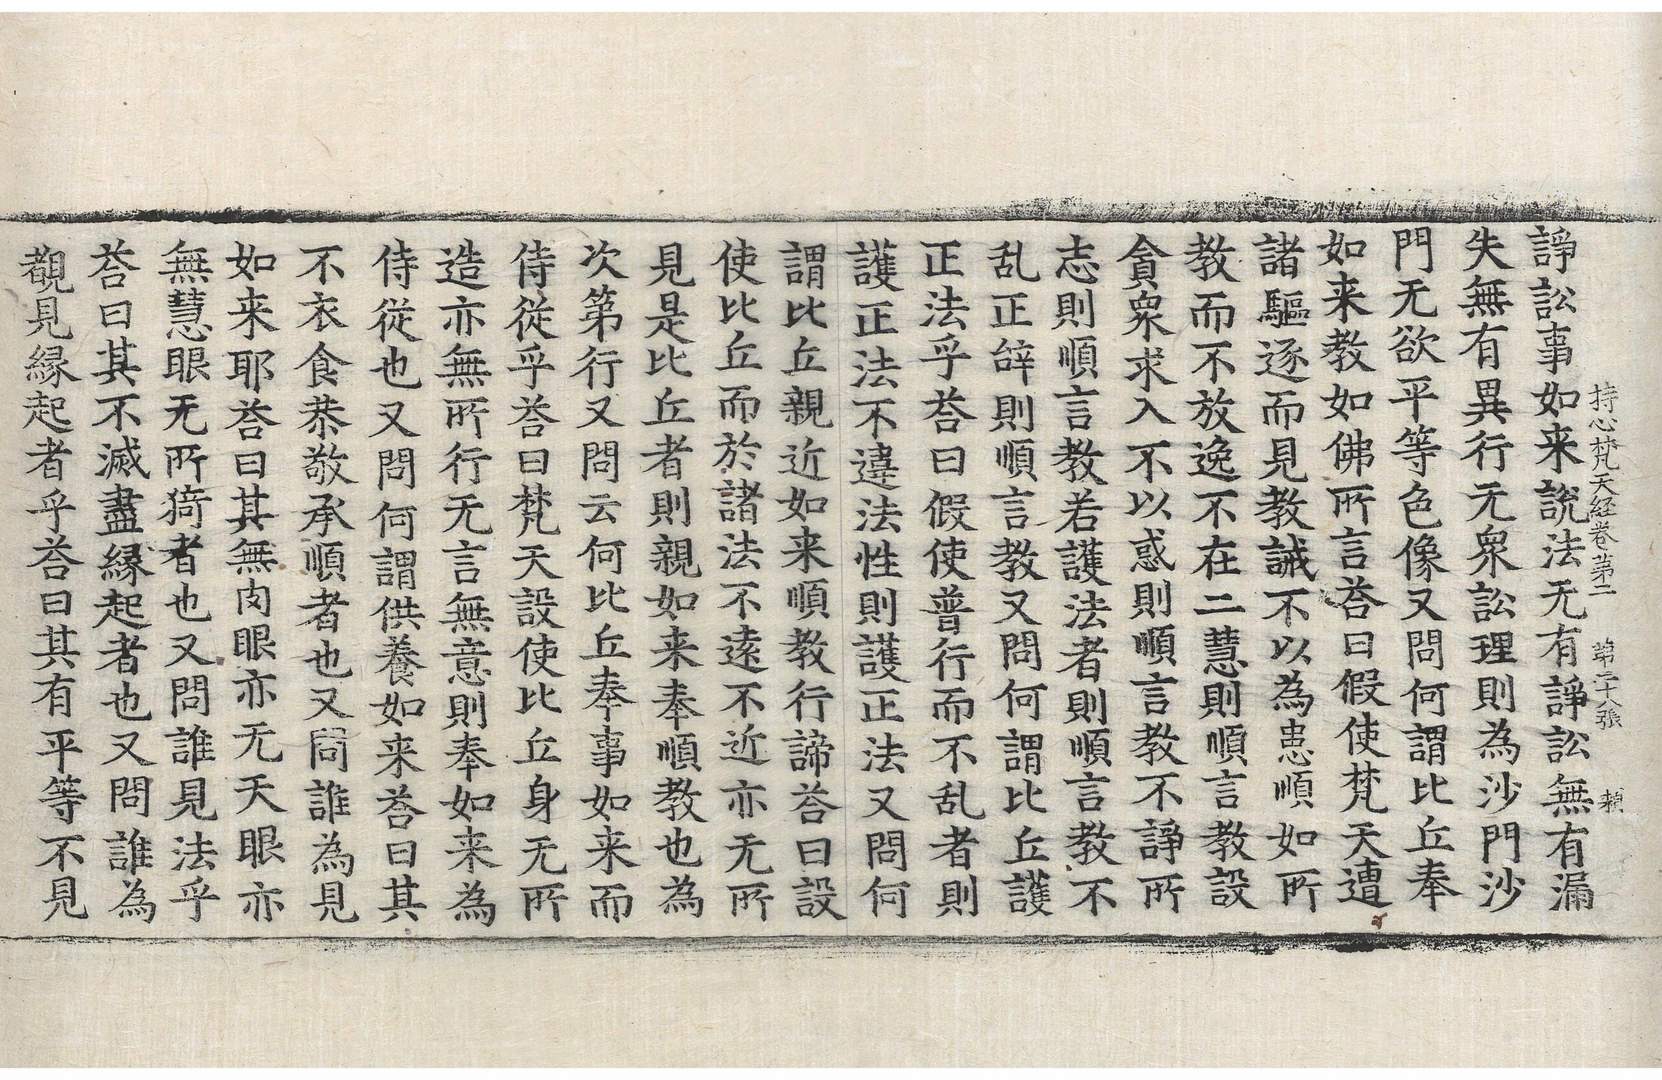 諍訟事如来說法无有諍訟無有漏
持心梵天経卷第二 第二十八張 賴
失無有異行无衆訟理則為沙門沙
門无欲平等色像又問何謂比丘奉
如来教如佛所言荅曰假使梵天遭
諸驅逐而見教誡不以為恚順如所
教而不放逸不在二慧則順言教設
貪衆求入不以惑則順言教不諍所
志則順言教若護法者則順言教不
乱正辝則順言教又問何謂比丘護
正法乎荅曰假使普行而不乱者則
護正法不違法性則護正法又問何
謂比丘親近如来順教行諦荅曰設
使比丘而於諸法不遠不近亦无所
見是比丘者則親如来奉順教也為
次第行又問云何比丘奉事如来而
侍從乎荅曰梵天設使比丘身无所
造亦無所行无言無意則奉如来為
侍從也又問何謂供養如来荅曰其
不衣食恭敬承順者也又問誰為見
如来耶荅曰其無肉眼亦无天眼亦
無慧眼无所猗者也又問誰見法乎
荅曰其不滅盡縁起者也又問誰為
觀見縁起者乎荅曰其有平等不見